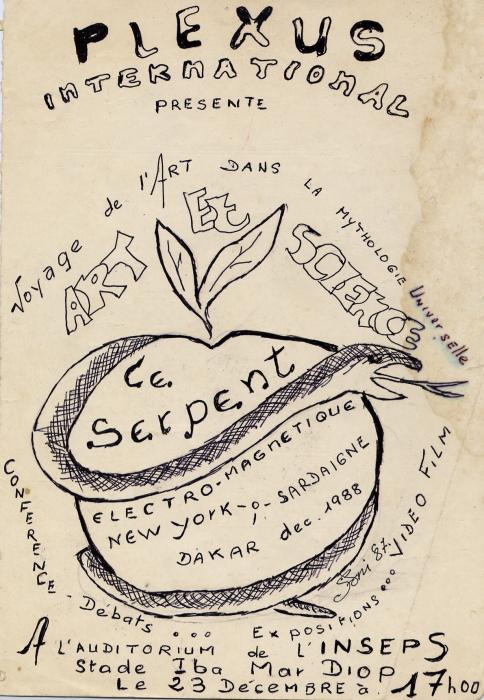 PLEXUS
INTERNATIONAL
PRESENTE
Voyage de l'ART DANS LA MYTHOLOGIE UNIVERSELLE
ART Et SCIENCE
Le
Serpent
ELECTRO-MAGNETIQUE
NEW YORK - SARDAIGNE
DAKAR dec. 1988
CONFERENCE - Débats ... Expositions ... VIDEO FILM
A L'AUDITORIUM de L'INSEPS
Stade Iba Mar Diop
Le 23 Décembre à 17h00